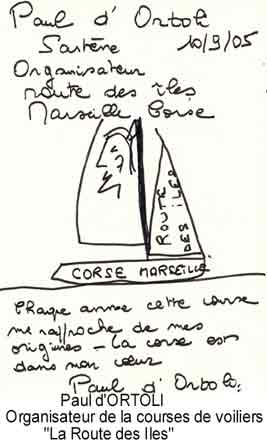 Paul d'Ortoli
Sartène 10/9/05
Organisateur
route des îles
Marseille Corse
ROUTE
DES ILES
CORSE MARSEILLE
Chaque année cette course
me rapproche de mes
origines - la corse est
dans mon cœur
Paul d'Ortoli
Paul d'ORTOLI
Organisateur de la courses de voiliers
"La Route des Iles"